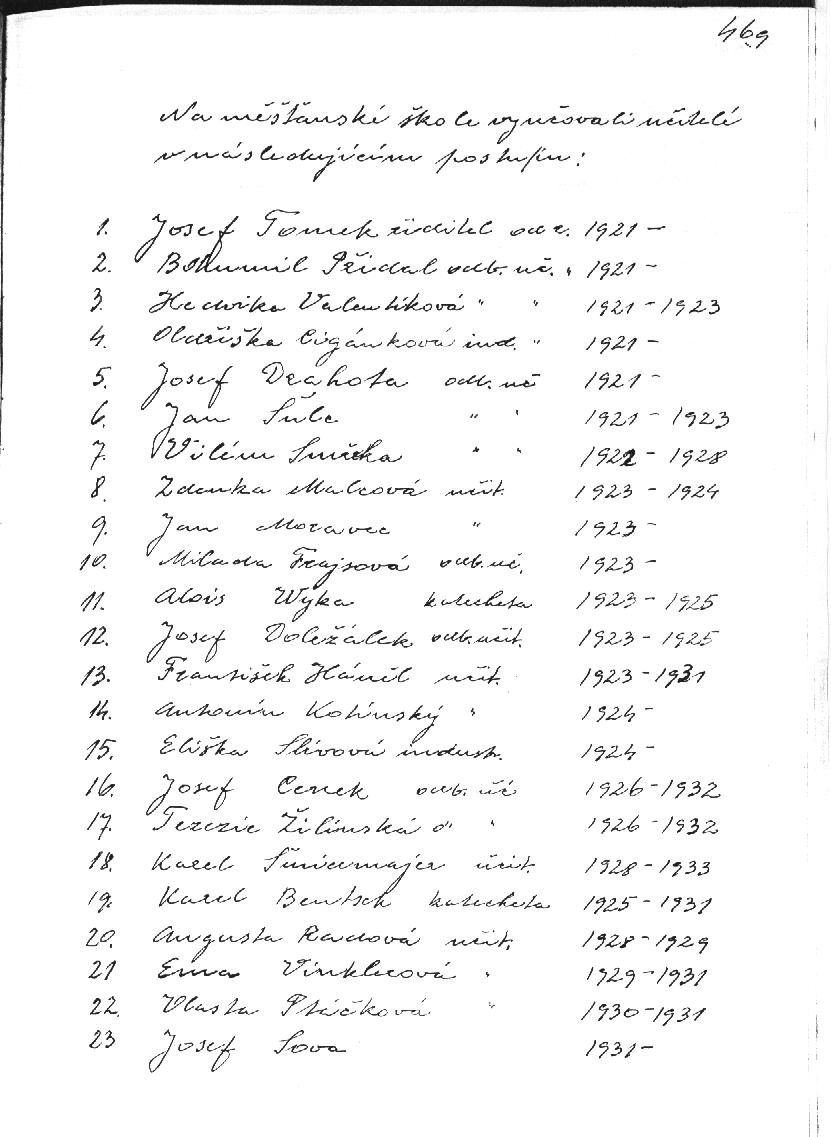 469
Na měšťanské škole vyučovali učitelé
v následujícím postupu:
1. Josef Tomek řiditel od r. 1921 –
2. Bohumil Přidal odb. uč. " 1921 –
3. Hedvika Valentíková " " 1921 – 1923
4. Oldřiška Cigánková ind. " 1921 –
5. Josef Drahota odb. uč 1921 –
6. Jan Šulc " " 1921 – 1923
7. Vilém Smička " " 1922 – 1928
8. Zdenka Malcová učit. 1923 – 1924
9. Jan Moravec " 1923 –
10. Milada Frajsová odb. uč. 1923 –
11. Alois Wyka katecheta 1923 – 1925
12. Josef Doležálek odb. učit. 1923 – 1925
13. František Háněl učit. 1923 – 1931
14. Antonín Kotínský " 1924 –
15. Eliška Slívová industr. 1924 –
16. Josef Cenek odb. uč 1926 – 1932
17. Terezie Žilinská o" " 1926 – 1932
18. Karel učit. 1928 – 1933
19. Karel Bentsch katecheta 1925 – 1931
20. Augusta Radová učit. 1928 – 1929
21 Ema Vinklerová " 1929 – 1931
22. Vlasta Ptáčková " 1930 – 1931
23 Josef Sova 1931 –